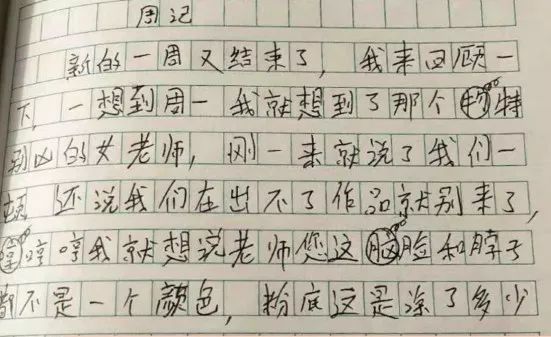 周记
新的一周又结束了，我来回顾一
下，一想到周一我就想到了那个特
别凶的女老师，刚一来就说了我们一
顿 还说我们在出不了作品就别来了，
哼哼我就想说老师您这脸和脖子
都不是一个颜色，粉底这是涂了多少